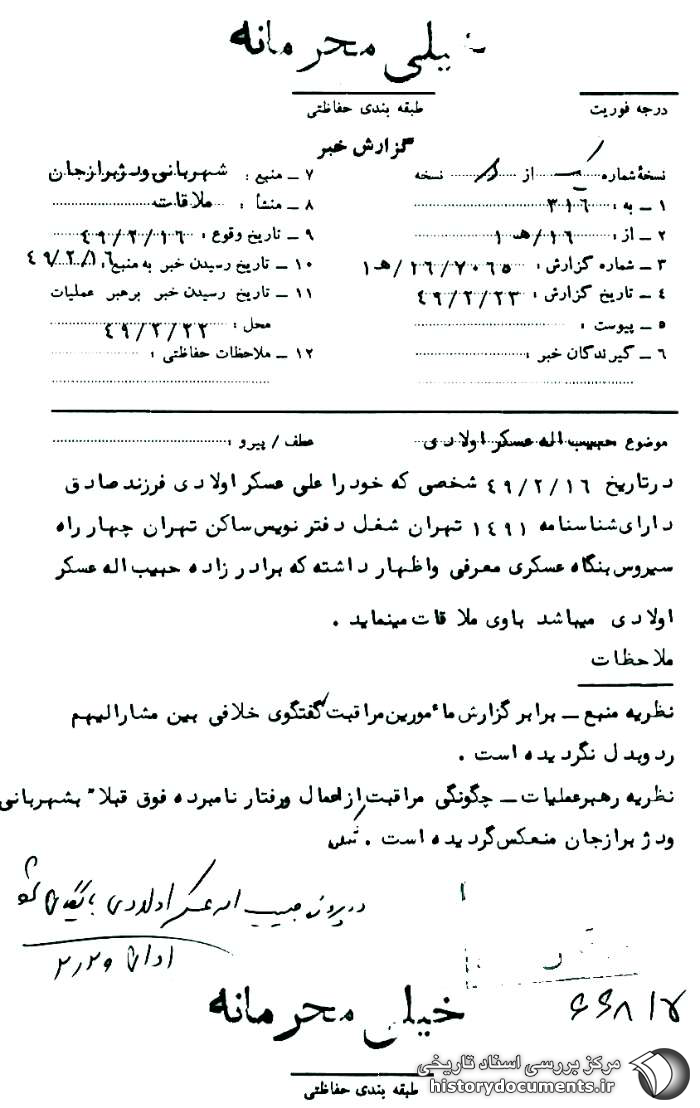 خیلی محرمانه
درجه فوریت
طبقه بندی حفاظتی
گزارش خبر
نسخهٔ شماره یک از نسخه
۱ - به : ۳۱۶
۲ - از : ۱۶/هـ ۱
۳ - شماره گزارش : ۷۰۶۵/۱۶/هـ ۱
۴ - تاریخ گزارش : ۴۹/۲/۲۳
۵ - پیوست :
۶ - گیرندگان خبر :
۷ - منبع : شهربانی ودژ برازجان
۸ - منشأ : ملاقات
۹ - تاریخ وقوع : ۴۹/۲/۱۶
۱۰ - تاریخ رسیدن خبر به منبع : ۴۹/۲/۱۶
۱۱ - تاریخ رسیدن خبر برهبر عملیات
محل : ۴۹/۲/۲۲
۱۲ - ملاحظات حفاظتی :
موضوع حبیب اله عسکر اولادی
عطف / پیرو :
درتاریخ ۴۹/۲/۱۶ شخصی که خود را علی عسکر اولادی فرزند صادق
دارای شناسنامه ۱۴۹۱ تهران شغل دفتر نویس ساکن تهران چهار راه
سیروس بنگاه عسکری معرفی واظهار داشته که برادر زاده حبیب اله عسکر
اولادی میباشد باوی ملاقات مینماید .
ملاحظات
نظریه منبع - برابر گزارش مأمورین مراقبت گفتگوی خلافی بین مشارالیهم
ردوبدل نگردیده است .
نظریه رهبرعملیات - چگونگی مراقبت از اعمال ورفتار نامبرده فوق قبلاً بشهربانی
ودژ برازجان منعکس گردیده است .
در پرونده حبیب اله عسکر اولادی بایگانی شود
۶۶۸۱۷
خیلی محرمانه
طبقه بندی حفاظتی
مرکز بررسی اسناد تاریخی
historydocuments.ir